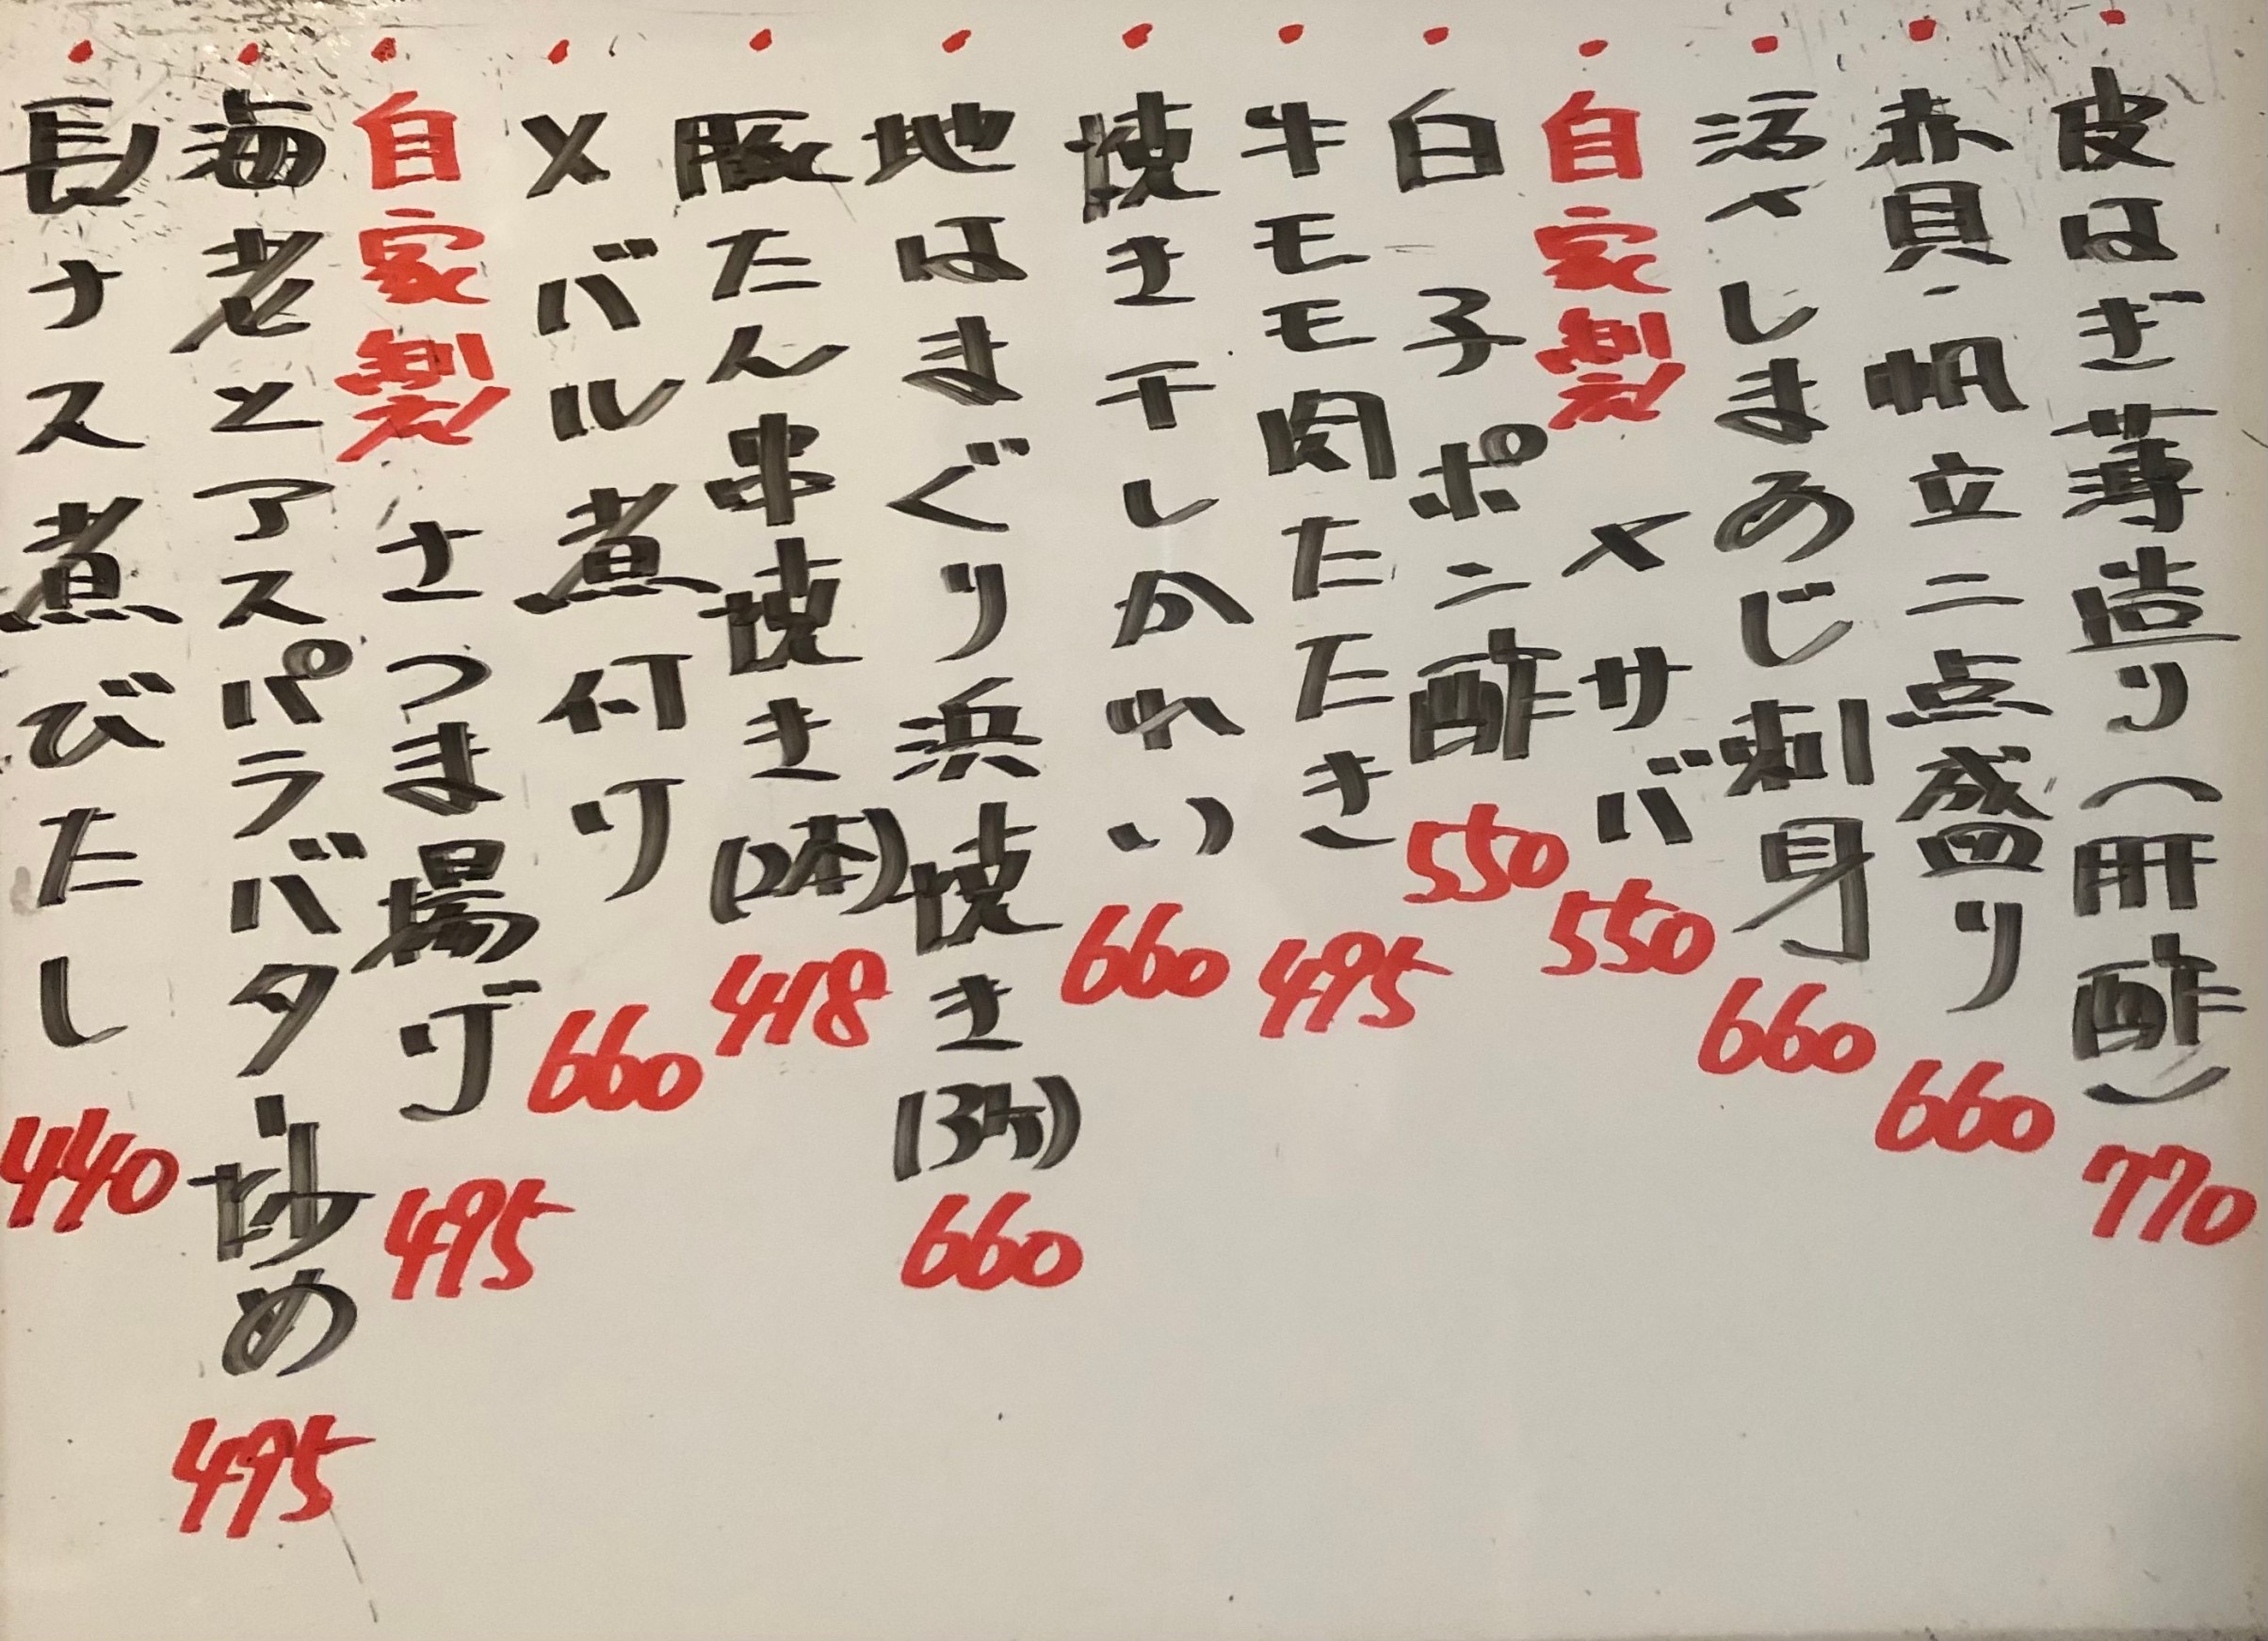 ・皮はぎ薄造り(肝酢) 770
・赤貝・帆立二点盛り 660
・活〆しまあじ刺身 660
・自家製 〆サバ 550
・白子ポン酢 550
・牛モモ肉たたき 495
・焼き干しかれい 660
・地はまぐり浜焼き(3ケ) 660
・豚たん串焼き(2本) 418
・メバル煮付け 660
・自家製 さつま揚げ 495
・海老とアスパラバター炒め 495
・長ナス煮びたし 440